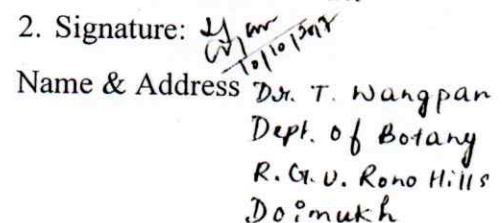 2. Signature:
10/10/2017
Name & Address Dr. T. Wangpan
Dept. of Botany
R.G.U. Rono Hills
Doimukh